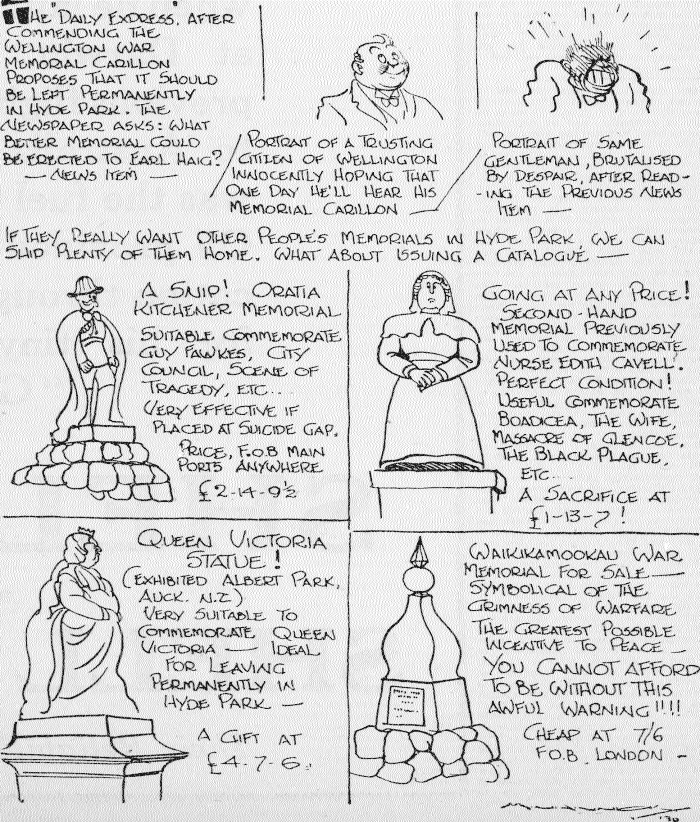 THE "DAILY EXPRESS", AFTER
COMMENDING THE
WELLINGTON WAR
MEMORIAL CARILLON
PROPOSES THAT IT SHOULD
BE LEFT PERMANENTLY
IN HYDE PARK. THE
NEWSPAPER ASKS: WHAT
BETTER MEMORIAL COULD
BE ERECTED TO EARL HAIG?
— NEWS ITEM —
PORTRAIT OF A TRUSTING
CITIZEN OF WELLINGTON
INNOCENTLY HOPING THAT
ONE DAY HE'LL HEAR HIS
MEMORIAL CARILLON —
PORTRAIT OF SAME
GENTLEMAN, BRUTALISED
BY DESPAIR, AFTER READ-
-ING THE PREVIOUS NEWS
ITEM —
IF THEY REALLY WANT OTHER PEOPLE'S MEMORIALS IN HYDE PARK, WE CAN
SHIP PLENTY OF THEM HOME. WHAT ABOUT ISSUING A CATALOGUE —
A SNIP! ORATIA
KITCHENER MEMORIAL
SUITABLE COMMEMORATE
GUY FAWKES, CITY
COUNCIL, SCENE OF
TRAGEDY, ETC...
VERY EFFECTIVE IF
PLACED AT SUICIDE GAP.
PRICE, F.O.B MAIN
PORTS ANYWHERE
£2-14-9½
GOING AT ANY PRICE!
SECOND-HAND
MEMORIAL PREVIOUSLY
USED TO COMMEMORATE
NURSE EDITH CAVELL.
PERFECT CONDITION!
USEFUL COMMEMORATE
BOADICEA, THE WIFE,
MASSACRE OF GLENCOE,
THE BLACK PLAGUE,
ETC...
A SACRIFICE AT
£1-13-7!
QUEEN VICTORIA
STATUE!
(EXHIBITED ALBERT PARK,
AUCK. N.Z)
VERY SUITABLE TO
COMMEMORATE QUEEN
VICTORIA — IDEAL
FOR LEAVING
PERMANENTLY IN
HYDE PARK —
A GIFT AT
£4-7-6.
WAIKIKAMOOKAU WAR
MEMORIAL FOR SALE —
SYMBOLICAL OF THE
GRIMNESS OF WARFARE
THE GREATEST POSSIBLE
INCENTIVE TO PEACE —
YOU CANNOT AFFORD
TO BE WITHOUT THIS
AWFUL WARNING!!!!
CHEAP AT 7/6
F.O.B. LONDON -